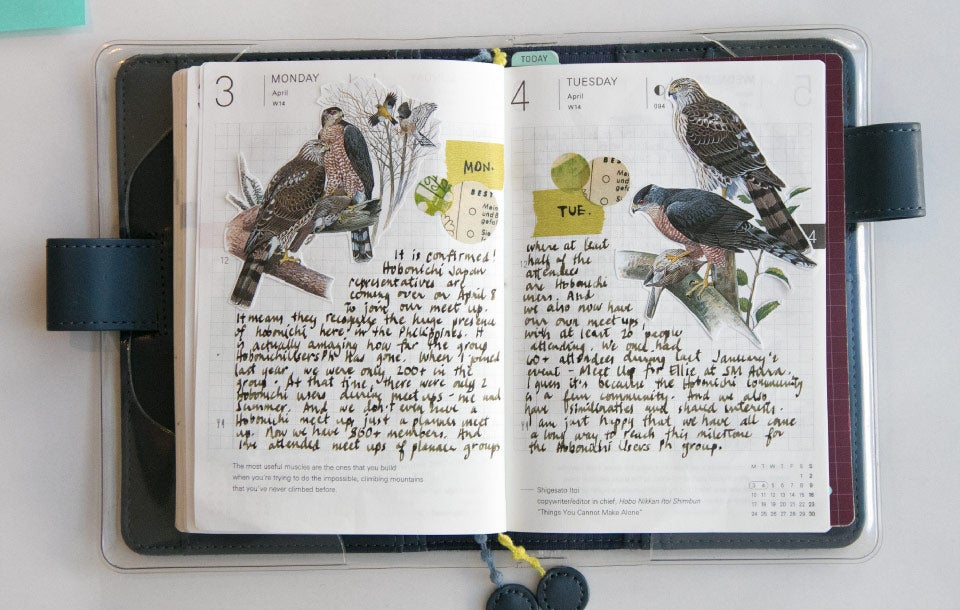 3
MONDAY
April
W14
MON.
BEST
Mein
und B
gefo
Sie
12
It is confirmed!
Hobonichi Japan
representatives are
coming over on April 8
to join our meet up.
It means they recognize the huge presence
of hobonichi here in the Philippines. It
is actually amazing how far the group
HobonichiUsersPH has gone. When I joined
last year, we were only 200+ in the
group. At that time, there were only 2
Hobonichi users during meet ups - me and
Summer. And we don't even have a
Hobonichi meet up, just a planner meet
up. Now we have 860+ members. And
I've attended meet ups of planner groups
The most useful muscles are the ones that you build
when you're trying to do the impossible, climbing mountains
that you've never climbed before.
TODAY
4
TUESDAY
April
W14
094
5
BES
Mein
und
gefo
TUE.
4
12
where at least
half of the
attendees
are Hobonichi
users. And
we also now have
our own meet ups,
with at least 20 people
attending. We once had
60+ attendees during last January's
event - Meet Up for Ellie at SM Aura.
I guess it's because the Hobonichi community
is a fun community. And we also
have similarities and shared interests.
I am just happy that we have all come
a long way to reach this milestone for
the Hobonichi Users PH group.
Shigesato Itoi
copywriter/editor in chief, Hobo Nikkan Itoi Shimbun
"Things You Cannot Make Alone"
M T W T F S S
1 2
3 4 5 6 7 8 9
10 11 12 13 14 15 16
17 18 19 20 21 22 23
24 25 26 27 28 29 30